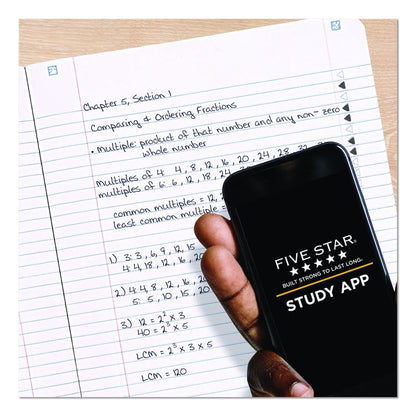 Chapter 5, Section 1
Comparing & Ordering Fractions
• Multiple: product of that number and any non-zero
whole number
multiples of 4: 4, 8, 12, 16, 20, 24, 28,
multiples of 6: 6, 12, 18, 24,
common multiples = 12,
least common multiple
1) 3: 3, 6, 9, 12, 15
4: 4, 8, 12, 16, 20
2) 4: 4, 8, 12, 16, 20
5: 5, 10, 15, 20
3) 12 = 2² x 3
40 = 2³ x 5
LCM = 2³ x 3 x 5
LCM = 120
FIVE STAR®
BUILT STRONG TO LAST LONG
STUDY APP